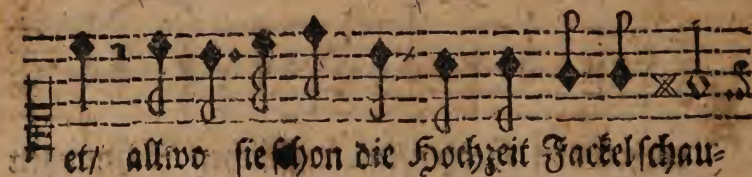 et/ allwo sie schon die Hochzeit Fackel schau⸗